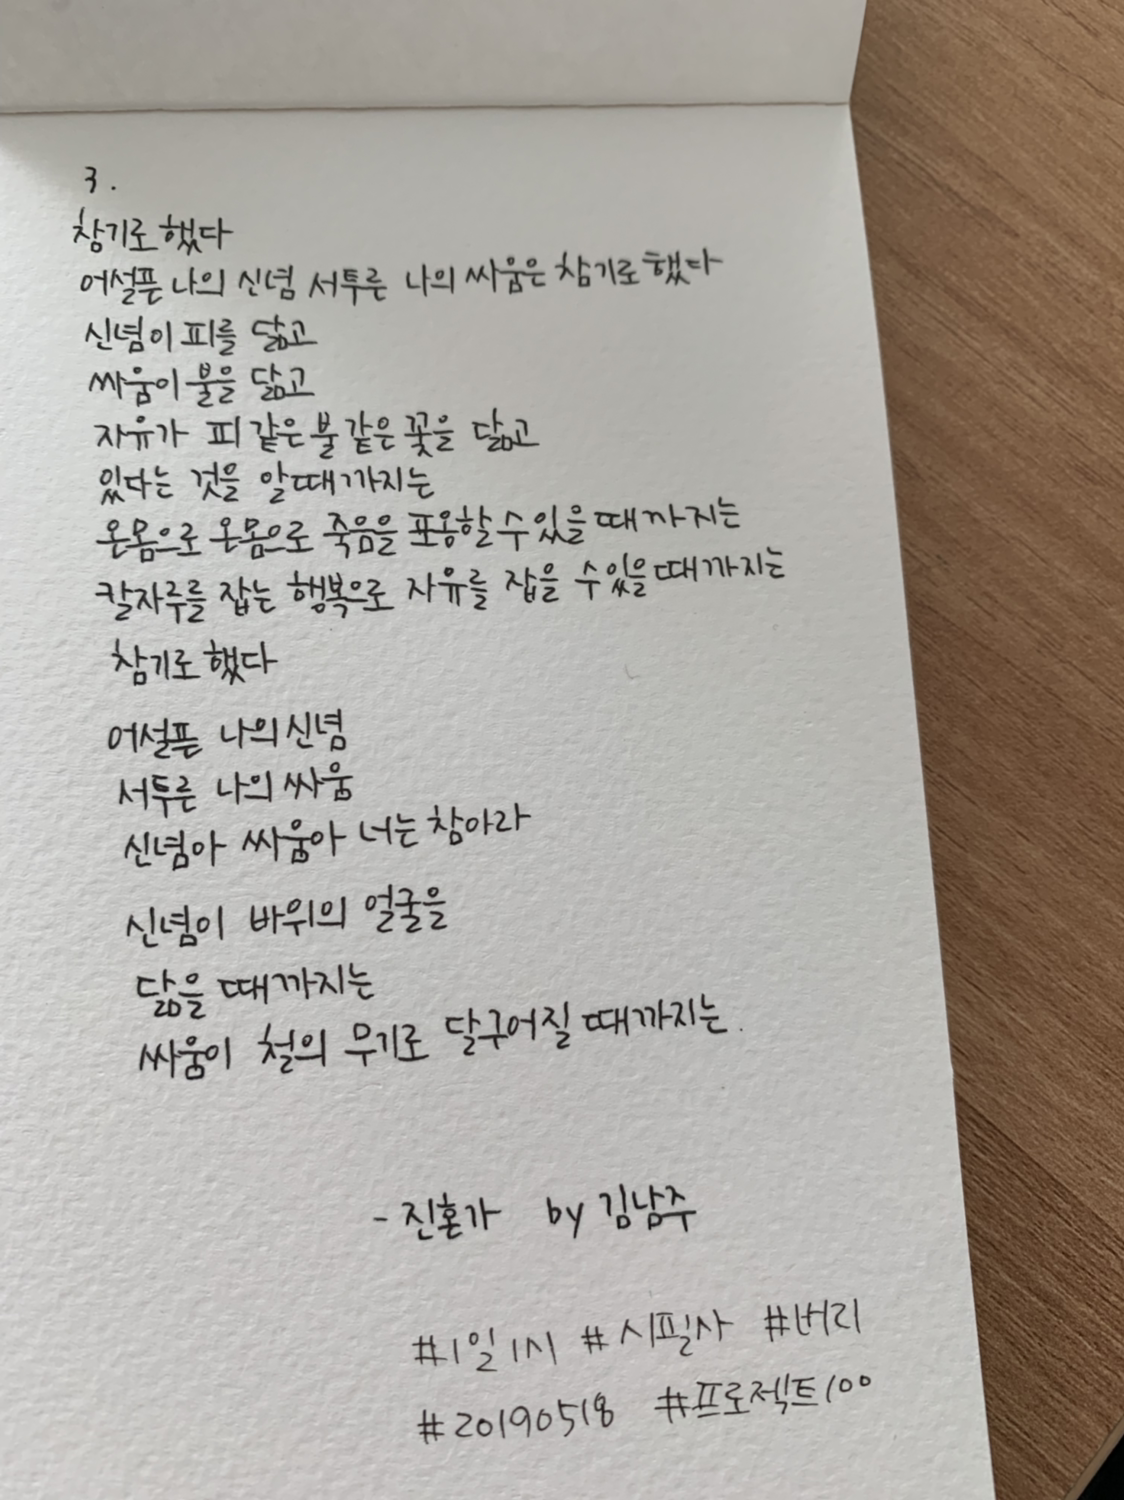 3.
참기로 했다
어설픈 나의 신념 서투른 나의 싸움은 참기로 했다
신념이 피를 닮고
싸움이 불을 닮고
자유가 피 같은 불 같은 꽃을 닮고
있다는 것을 알 때까지는
온몸으로 온몸으로 죽음을 포옹할 수 있을 때까지는
칼자루를 잡는 행복으로 자유를 잡을 수 있을 때까지는
참기로 했다
어설픈 나의 신념
서투른 나의 싸움
신념아 싸움아 너는 참아라
신념이 바위의 얼굴을
닮을 때까지는
싸움이 철의 무기로 달구어질 때까지는.
- 진혼가 by 김남주
#1일1시 #시필사 #버리
#20190518 #프로젝트100